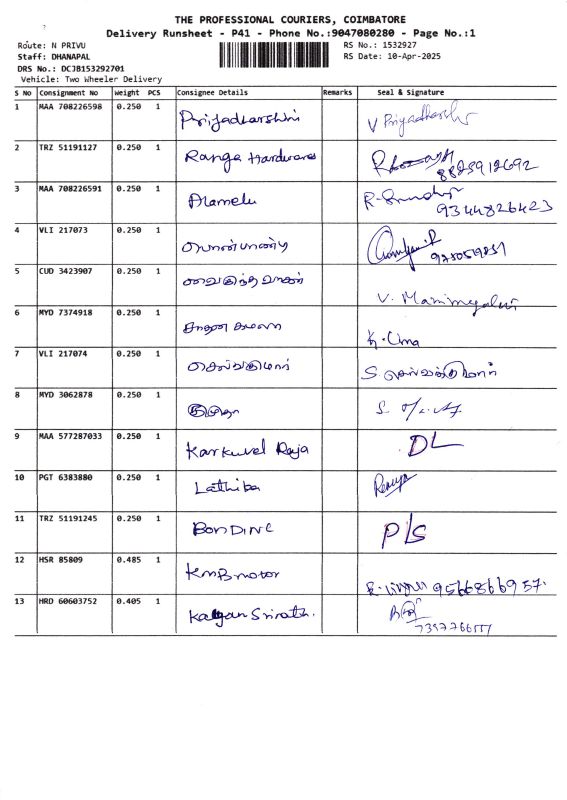 THE PROFESSIONAL COURIERS, COIMBATORE
Delivery Runsheet - P41 - Phone No.:9047080280 - Page No.:1
Route: N PRIVU
RS No.: 1532927
Staff: DHANAPAL
RS Date: 10-Apr-2025
DRS No.: DCJB153292701
Vehicle: Two Wheeler Delivery
S No Consignment No Weight PCS Consignee Details Remarks Seal & Signature
1 MAA 708226598 0.250 1 Priyadharshini V Priyadharshi
2 TRZ 51191127 0.250 1 Ranga Hardwares 8825912692
3 MAA 708226591 0.250 1 Alamelu 9344826423
4 VLI 217073 0.250 1 பொன்பாண்டி
5 CUD 3423907 0.250 1 V. Manimegalai
6 MYD 7374918 0.250 1 K. Uma
7 VLI 217074 0.250 1 செல்வகுமார் S செல்வக்குமார்
8 MYD 3062878 0.250 1
9 MAA 577287033 0.250 1 Karkuvel Raja DL
10 PGT 6383880 0.250 1 Lathika Ramya
11 TRZ 51191245 0.250 1 BonDINC P/S
12 HSR 85809 0.485 1 KMB motor 9566866957
13 HRD 60603752 0.405 1 Kalyan Srinath.